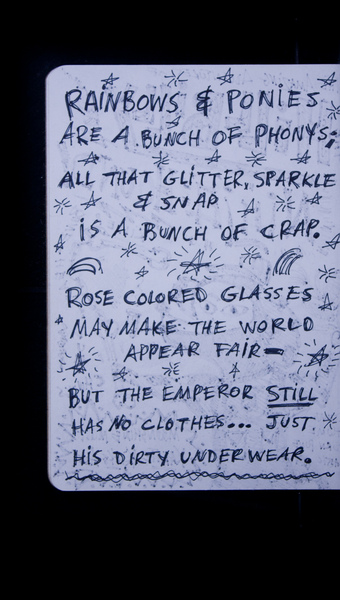 RAINBOWS & PONIES
ARE A BUNCH OF PHONYS;
ALL THAT GLITTER, SPARKLE
& SNAP
IS A BUNCH OF CRAP.
ROSE COLORED GLASSES
MAY MAKE THE WORLD
APPEAR FAIR—
BUT THE EMPEROR STILL
HAS NO CLOTHES... JUST
HIS DIRTY UNDERWEAR.